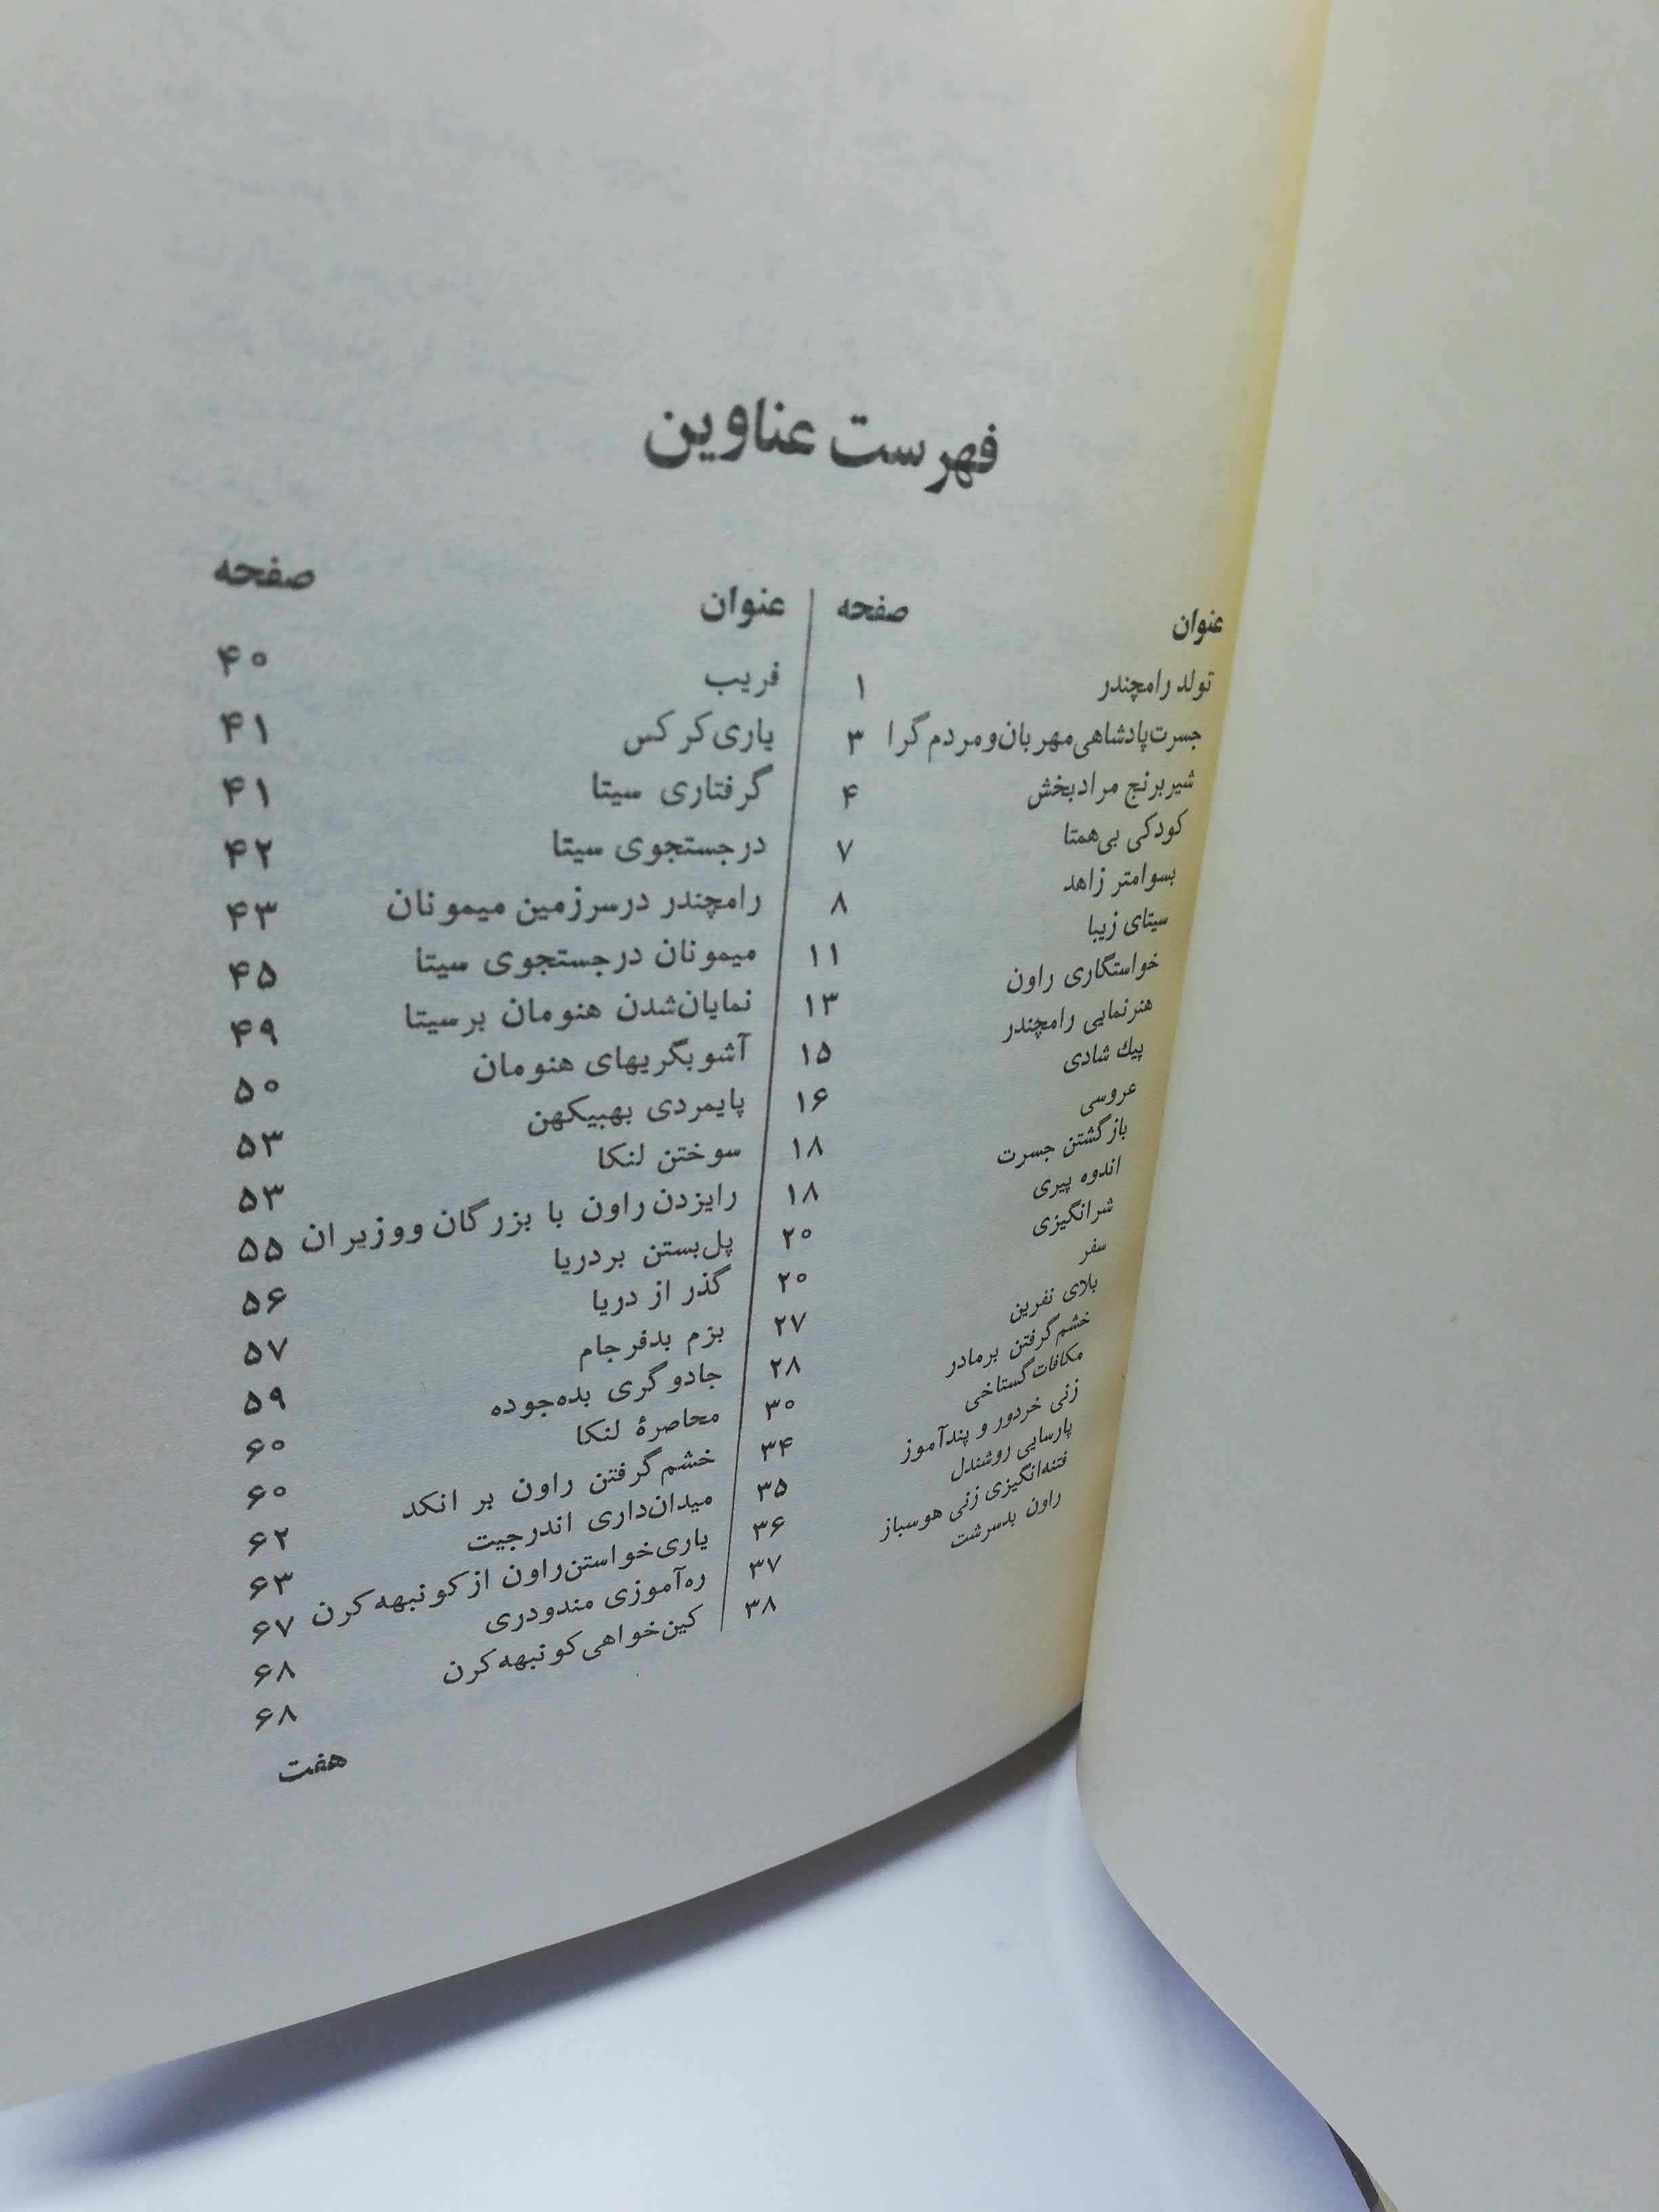 فهرست عناوین
عنوان صفحه
تولد رامچندر ۱
جسرت پادشاهی مهربان و مردم گرا ۳
شیربرنج مرادبخش ۴
کودکی بی‌همتا ۷
بسوامتر زاهد ۸
سیتای زیبا ۱۱
خواستگاری راون ۱۳
هنرنمایی رامچندر ۱۵
پیك شادی ۱۶
عروسی ۱۸
بازگشتن جسرت ۱۸
اندوه پیری ۲۰
شرانگیزی ۲۰
سفر ۲۷
بلای نفرین ۲۸
خشم گرفتن برمادر ۳۰
مکافات گستاخی ۳۴
زنی خردور و پندآموز ۳۵
پارسایی روشندل ۳۶
فتنه‌انگیزی زنی هوسباز ۳۷
راون بدسرشت ۳۸
عنوان صفحه
فریب ۴۰
یاری کرکس ۴۱
گرفتاری سیتا ۴۱
درجستجوی سیتا ۴۲
رامچندر درسرزمین میمونان ۴۳
میمونان درجستجوی سیتا ۴۵
نمایان‌شدن هنومان برسیتا ۴۹
آشوبگریهای هنومان ۵۰
پایمردی بهبیکهن ۵۳
سوختن لنکا ۵۳
رایزدن راون با بزرگان و وزیران ۵۵
پل‌بستن بردریا ۵۶
گذر از دریا ۵۷
بزم بدفرجام ۵۹
جادوگری بده‌جوده ۶۰
محاصرۀ لنکا ۶۰
خشم گرفتن راون بر انکد ۶۲
میدان‌داری اندرجیت ۶۳
یاری‌خواستن راون از کونبهه کرن ۶۷
ره‌آموزی مندودری ۶۸
کین‌خواهی کونبهه کرن ۶۸
هفت